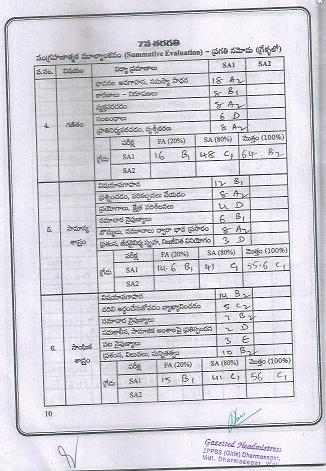 7వ తరగతి
సంగ్రహణాత్మక మూల్యాంకనం (Summative Evaluation) – ప్రగతి నమోదు (గ్రేడ్లలో)
వ.సం. విషయం విద్యా ప్రమాణాలు SA1 SA2
4. గణితం
భావనల అవగాహన, సమస్యా సాధన 18 A2
కారణాలు - నిరూపణలు 8 B1
వ్యక్తపరచడం 8 A2
సంబంధాలు 6 D
ప్రాతినిధ్యపరచడం, దృశ్యీకరణ 8 A2
గ్రేడు పరీక్ష FA (20%) SA (80%) మొత్తం (100%)
SA1 16 B1 48 C1 64 B2
SA2
5. సామాన్య శాస్త్రం
విషయావగాహన 12 B1
ప్రశ్నించడం, పరికల్పనలు చేయడం 8 A2
ప్రయోగాలు, క్షేత్ర పరిశీలనలు 4 D
సమాచార నైపుణ్యాలు 6 B1
బొమ్మలు, నమూనాల ద్వారా భావ ప్రసారం 8 A2
3 D
గ్రేడు పరీక్ష FA (20%) SA (80%) మొత్తం (100%)
SA1 14.6 B1 41 C1 55.6 C1
SA2
6. సాంఘిక శాస్త్రం
విషయావగాహన 14 B2
చదివి అర్థంచేసుకోవడం వ్యాఖ్యానించడం 5 C2
సమాచార నైపుణ్యాలు 7 B2
సమకాలీన, సామాజిక అంశాలపై ప్రతిస్పందన 2 D
పట నైపుణ్యాలు 3 E
ప్రశంస, విలువలు, సున్నితత్వం 10 B2
గ్రేడు పరీక్ష FA (20%) SA (80%) మొత్తం (100%)
SA1 15 B1 41 C1 56 C1
SA2
10
Gazetted Headmistress
ZPPSS (Girls) Dharmasagar,
Mdl, Dharmasagar